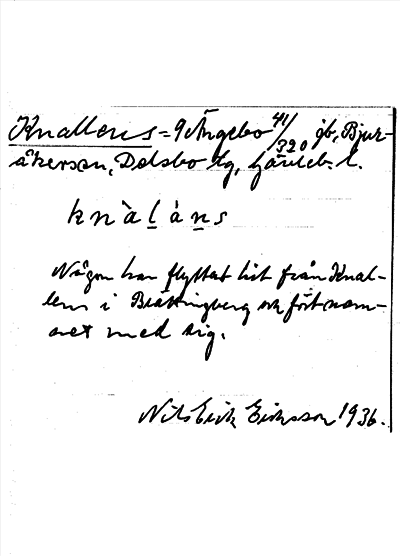 Knallens = 9 Ängebo 41/320 jb, Bjur-
åkerson, Delsbo tg, Gävleb. l.
knàl̲àn̲s
Någon har flyttat hit från Knal-
lens i Brättingberg och fört nam-
net med sig.
Nils Erik Eriksson 1936.